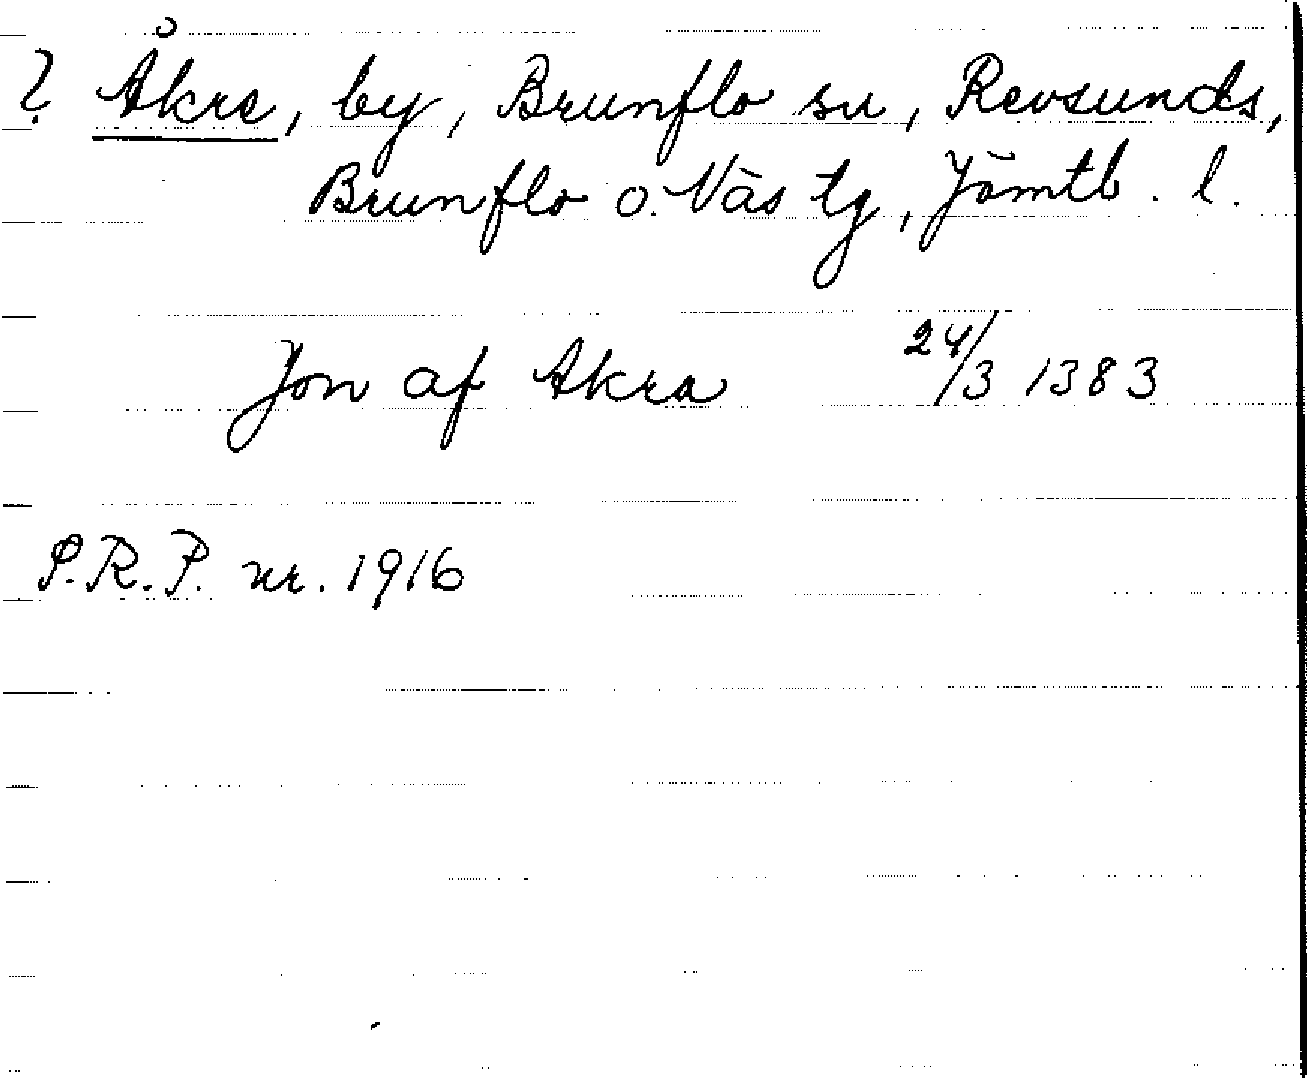 ? Åkre, by, Brunflo sn, Revsunds,
Brunflo o. Näs tg, Jämtl. l.
Jon af Akra 24/3 1383
S.R.P. nr. 1916